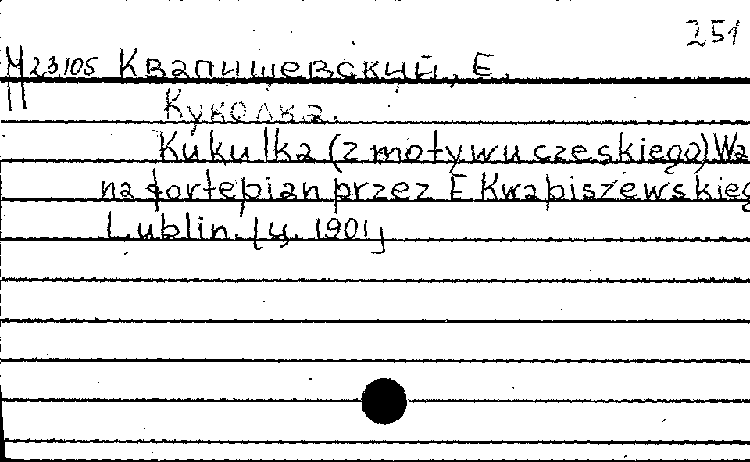 251
М 23105 Квапишевский, Е.
Куколка.
Kukulka (z motywu czeskiego) Wa
na fortepian przez E. Kwapiszewskieg
Lublin. [ц. 1901]